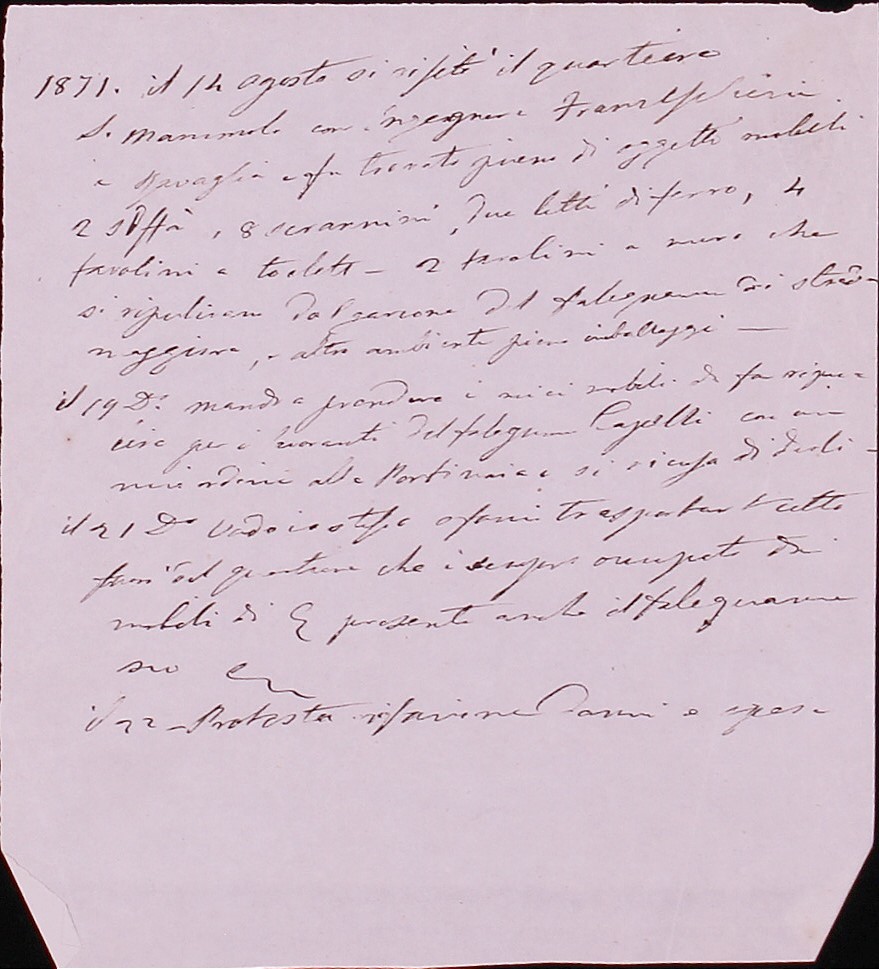 1871. il 14 agosto si visitò il quartiere
S. Mammolo con Ingegnere Franceschini
e fu trovato pieno di oggetti mobili
2 soffà, 8 scrannini, due letti di ferro, 4
tavolini a toelett - 2 tavolini a muro che
si ripulivano dal garzone del falegname di strada
maggiore, e altro ambiente pieno imballaggi —
il 19 Do. mando a prendere i miei mobili di
per i lavoranti del falegname Capelli con un
mio ordine alla Portinaia e si ricusa di darli -
il 21 Do vado io stesso trasportar tutto
fuori del quartiere che è sempre occupato da
mobili di presente anche il falegname
suo
il 22 - Protesta rifazione Danni e spese